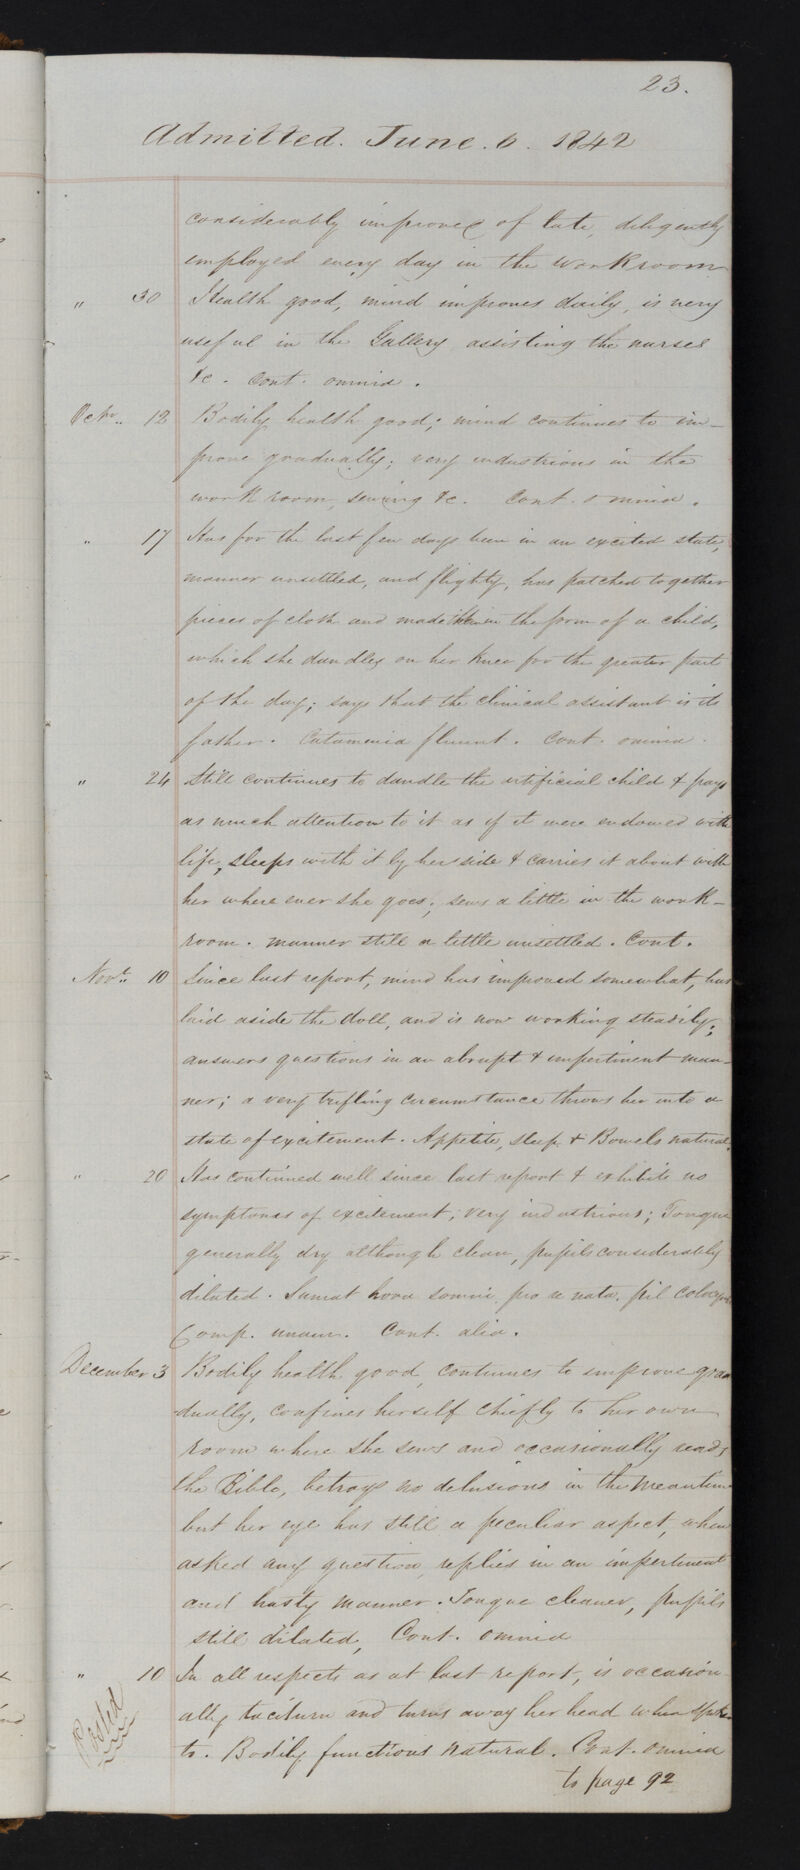 23.
Admitted. June. 6. 1842
considerably improved of late, diligently
employed every day in the workroom
" 30 Health good, mind improves daily, is very
useful in the Gallery assisting the nurses
&c. Cont. omnia.
Octr.. 12 Bodily health good; mind continues to im-
prove gradually; very industrious in the
work room, sewing &c. Cont. omnia.
" 17 Has for the last few days been in an excited state,
manner unsettled, and flighty, has patched together
pieces of cloth and made them in the form of a child,
which she dandles on her knee for the greater part
of the day; says that the clinical assistant is its
father. Catamenia fluunt. Cont. omnia.
" 24 Still continues to dandle the artificial child & pays
as much attention to it as if it were endowed with
life, sleeps with it by her side & carries it about with
her where ever she goes; sews a little in the work-
room. manner still a little unsettled. Cont.
Novr.. 10 Since last report, mind has improved somewhat, has
laid aside the doll, and is now working steadily;
answers questions in an abrupt & impertinent man-
ner; a very trifling circumstance throws her into a
state of excitement. Appetite, sleep & Bowels natural.
" 20 Has continued well since last report & exhibits no
symptoms of excitement; very industrious; Tongue
generally dry although clean, pupils considerably
dilated. Sumat hora somni pro re nata. pil Colocynth
Comp. unam. Cont. alia.
December 3 Bodily health good, continues to improve gra
dually, confines herself chiefly to her own
room where she sews and occasionally reads
the Bible, betrays no delusions in the meantime
but her eye has still a peculiar aspect, when
asked any question replies in an impertinent
and hasty manner. Tongue cleaner, pupils
still dilated, Cont. omnia
" 10 In all respects as at last report, is occasion
ally taciturn and turns away her head when spoken
to. Bodily functions natural. Cont. omnia
Posted
to page 92